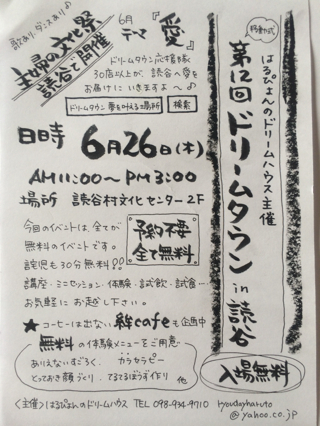 歌あり、ダンスあり♪
主婦の文化祭
読谷で開催
6月
テーマ『愛』
ドリームタウン応援隊
30店以上が、読谷へ愛を
お届けにいきますよ〜♪
ドリームタウン 夢を叶える場所 検索
移動式
はるぴょんのドリームハウス主催
第12回 ドリームタウン in 読谷
日時 6月26日(木)
AM11:00〜PM3:00
場所 読谷村文化センター2F
今回のイベントは、全てが
無料のイベントです。
託児も30分無料!!
予約不要
全て無料
講座・ミニセッション・体験・試飲・試食…
お気軽にお越し下さい。
★コーヒーは出ない絆cafeも企画中
無料の体験メニューをご用意
ありえないすごろく、カラセラピー
とっておき顔づくり、てるてるぼうず作り 他
入場無料
<主催>はるぴょんのドリームハウス TEL 098-934-9710
@yahoo.co.jp